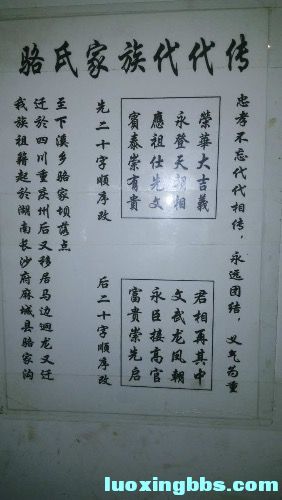 骆氏家族代代传
我族祖籍起於湖南长沙府麻城县骆家沟
迁於四川重庆州后又移居马边迴龙又迁
至下溪乡骆家坝落点
先二十字順序改
榮華大吉義
永登天朝相
應祖仕先文
賓泰崇有貴
后二十字順序改
君相再其中
文武龙凤朝
永臣接高官
富貴崇先启
忠孝不忘代代相传，永远团结，义气为重
luoxingbbs.com